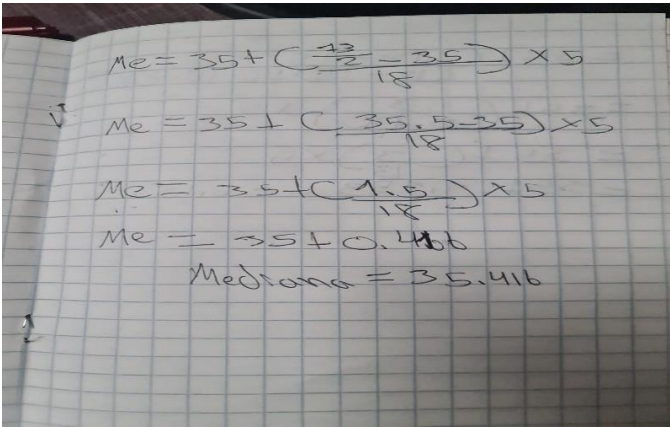 Me = 35 + ( (73/2 - 35) / 18 ) × 5
Me = 35 + ( (35.5-35) / 18 ) × 5
Me = 35 + ( 1.5 / 18 ) × 5
Me = 35 + 0.416
Mediana = 35.416